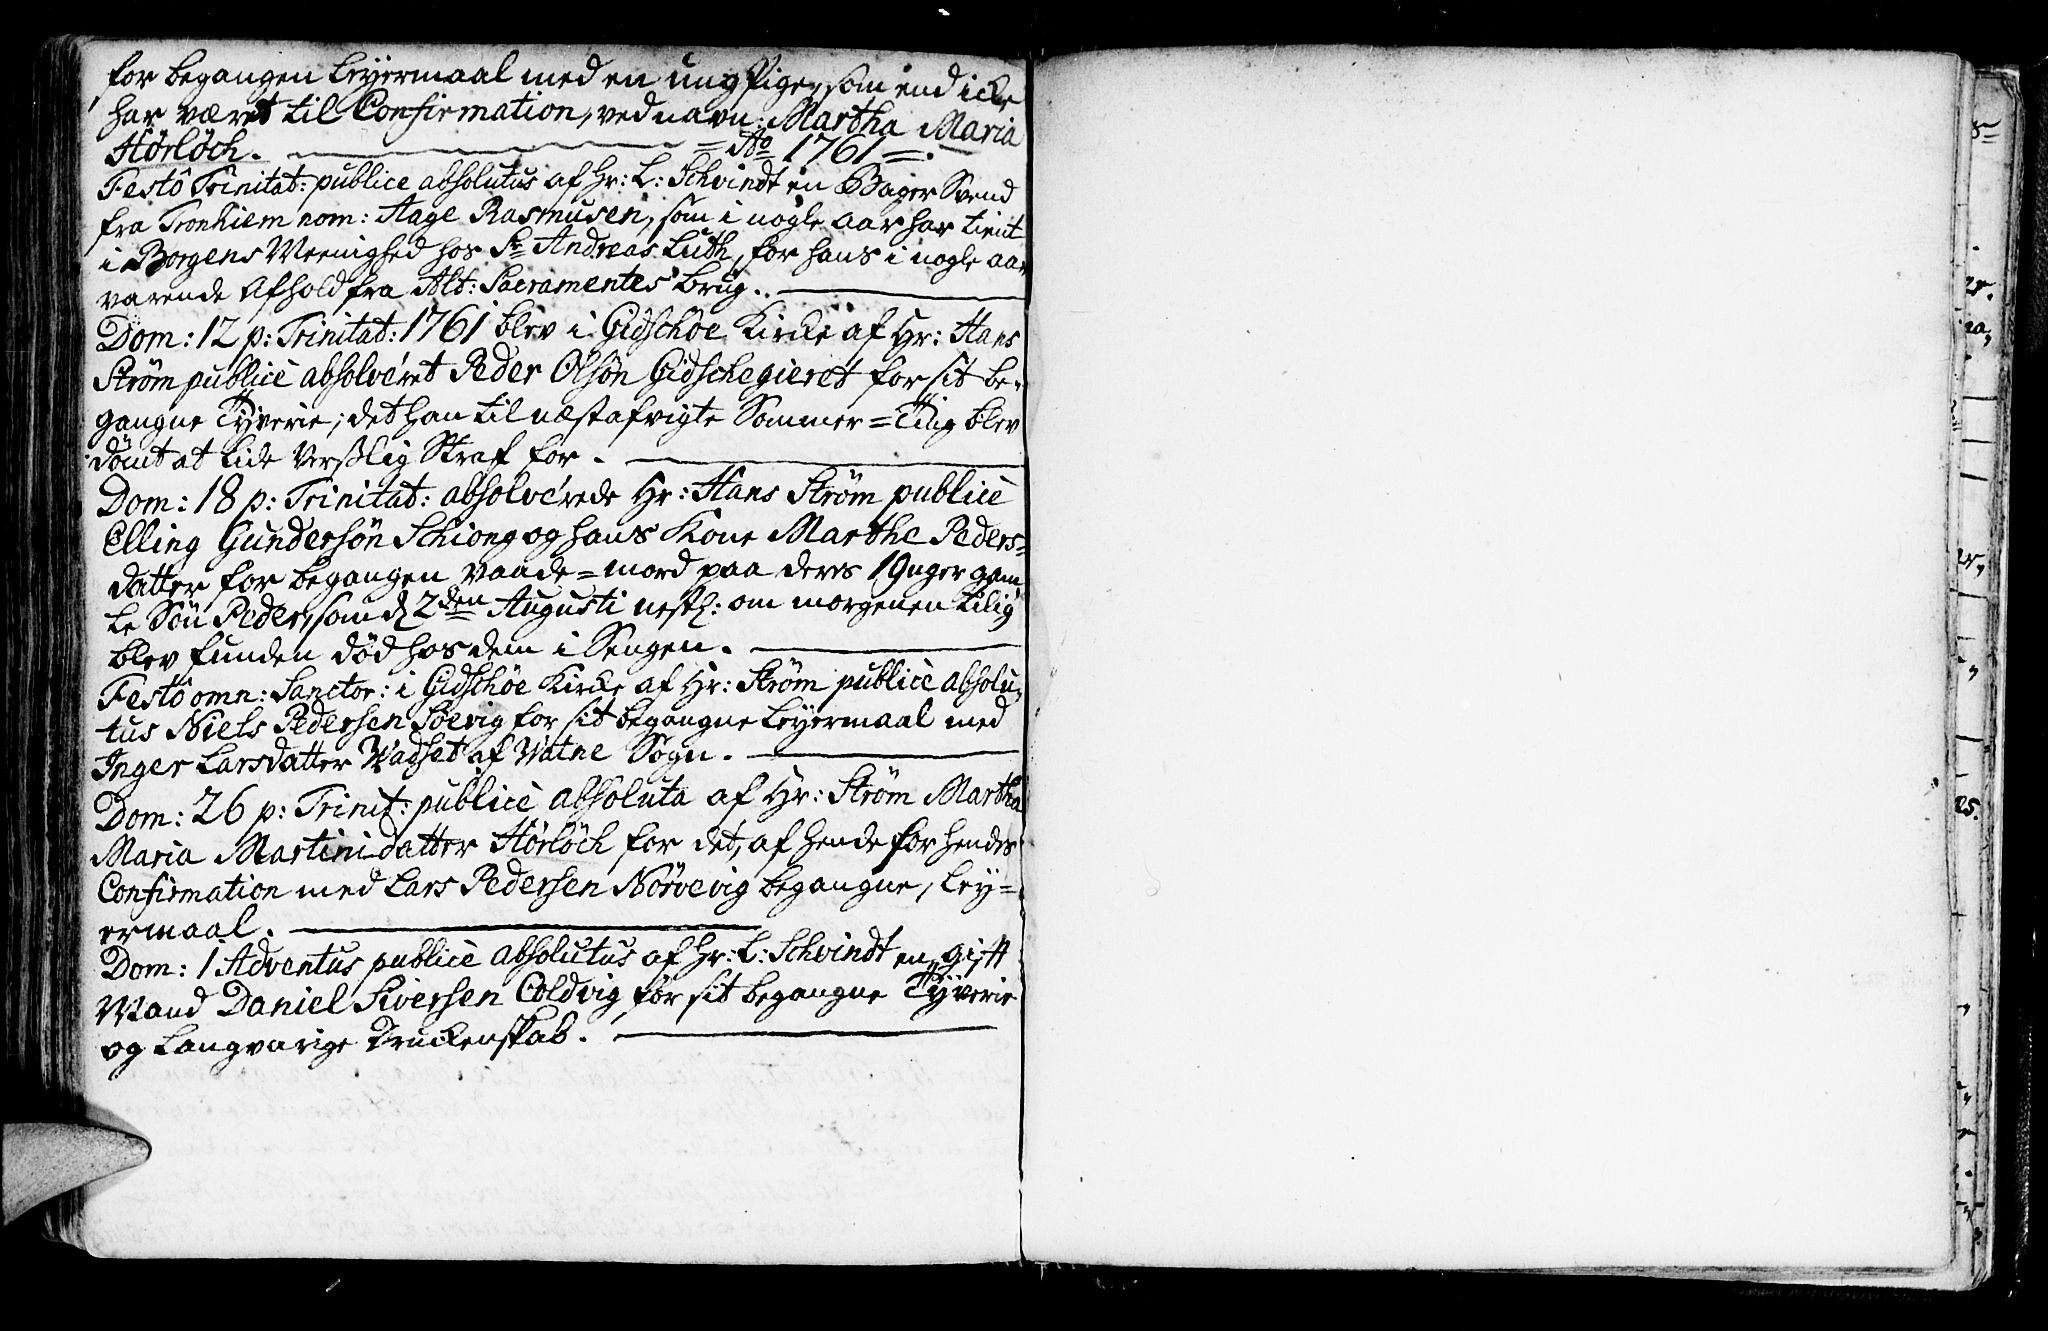 for begangen Leyermaal med en ung Pige, som end icke
har været til Confirmation, ved navn: Martha Maria
Hörlöch. = Ao 1761 =.
Festô Trinitat: publice absolutus af Hr: L: Schvindt en Bager Svend
fra Tronhiem nom: Aage Rasmusen, som i nogle aar har tient
i Borgens Meenighed hos Sr Andreas Luth, for hans i nogle aar
varende Afhold fra Alt: Sacramentes brug.
Dom: 12 p: Trinitat: 1761 blev i Gidschöe Kircke af Hr: Hans
Ström publicè absolvéret Peder Olsön Gidschegieret for sit be-
gangne Tyverie; det han til næstafvigte Sommer = Ting blev
dömt at lide Verßlig Straf for.
Dom: 18 p: Trinitat: absolvérede Hr: Hans Ström publicè
Elling Gundersön Schiong og hans Kone Marthe Peders=
datter for begangen vaade = mord paa deres 19 uger gam
le Sön Peder, som d 2den Augusti nestl: om morgenen tilig
blev funden död hos dem i Sengen.
Festô omn: Sanctor: i Gidschöe Kircke af Hr: Ström publicè absolu-
tus Niels Pedersen Söevig for sit begangne Leyermaal med
Inger Larsdatter Vadset af Vatne Sogn.
Dom: 26 p: Trinit: publicè absoluta af Hr: Ström Martha
Maria Martini datter Hörlöch for det, af hende for hendes
Confirmation med Lars Pedersen Nörvevig begangne, Ley=
ermaal.
Dom: 1 Adventus publicè absolutus af Hr: L: Schvindt en gift
Mand Daniel Siversen Coldvig for sit begangne Tyverie
og Langvarige Druckenskab.